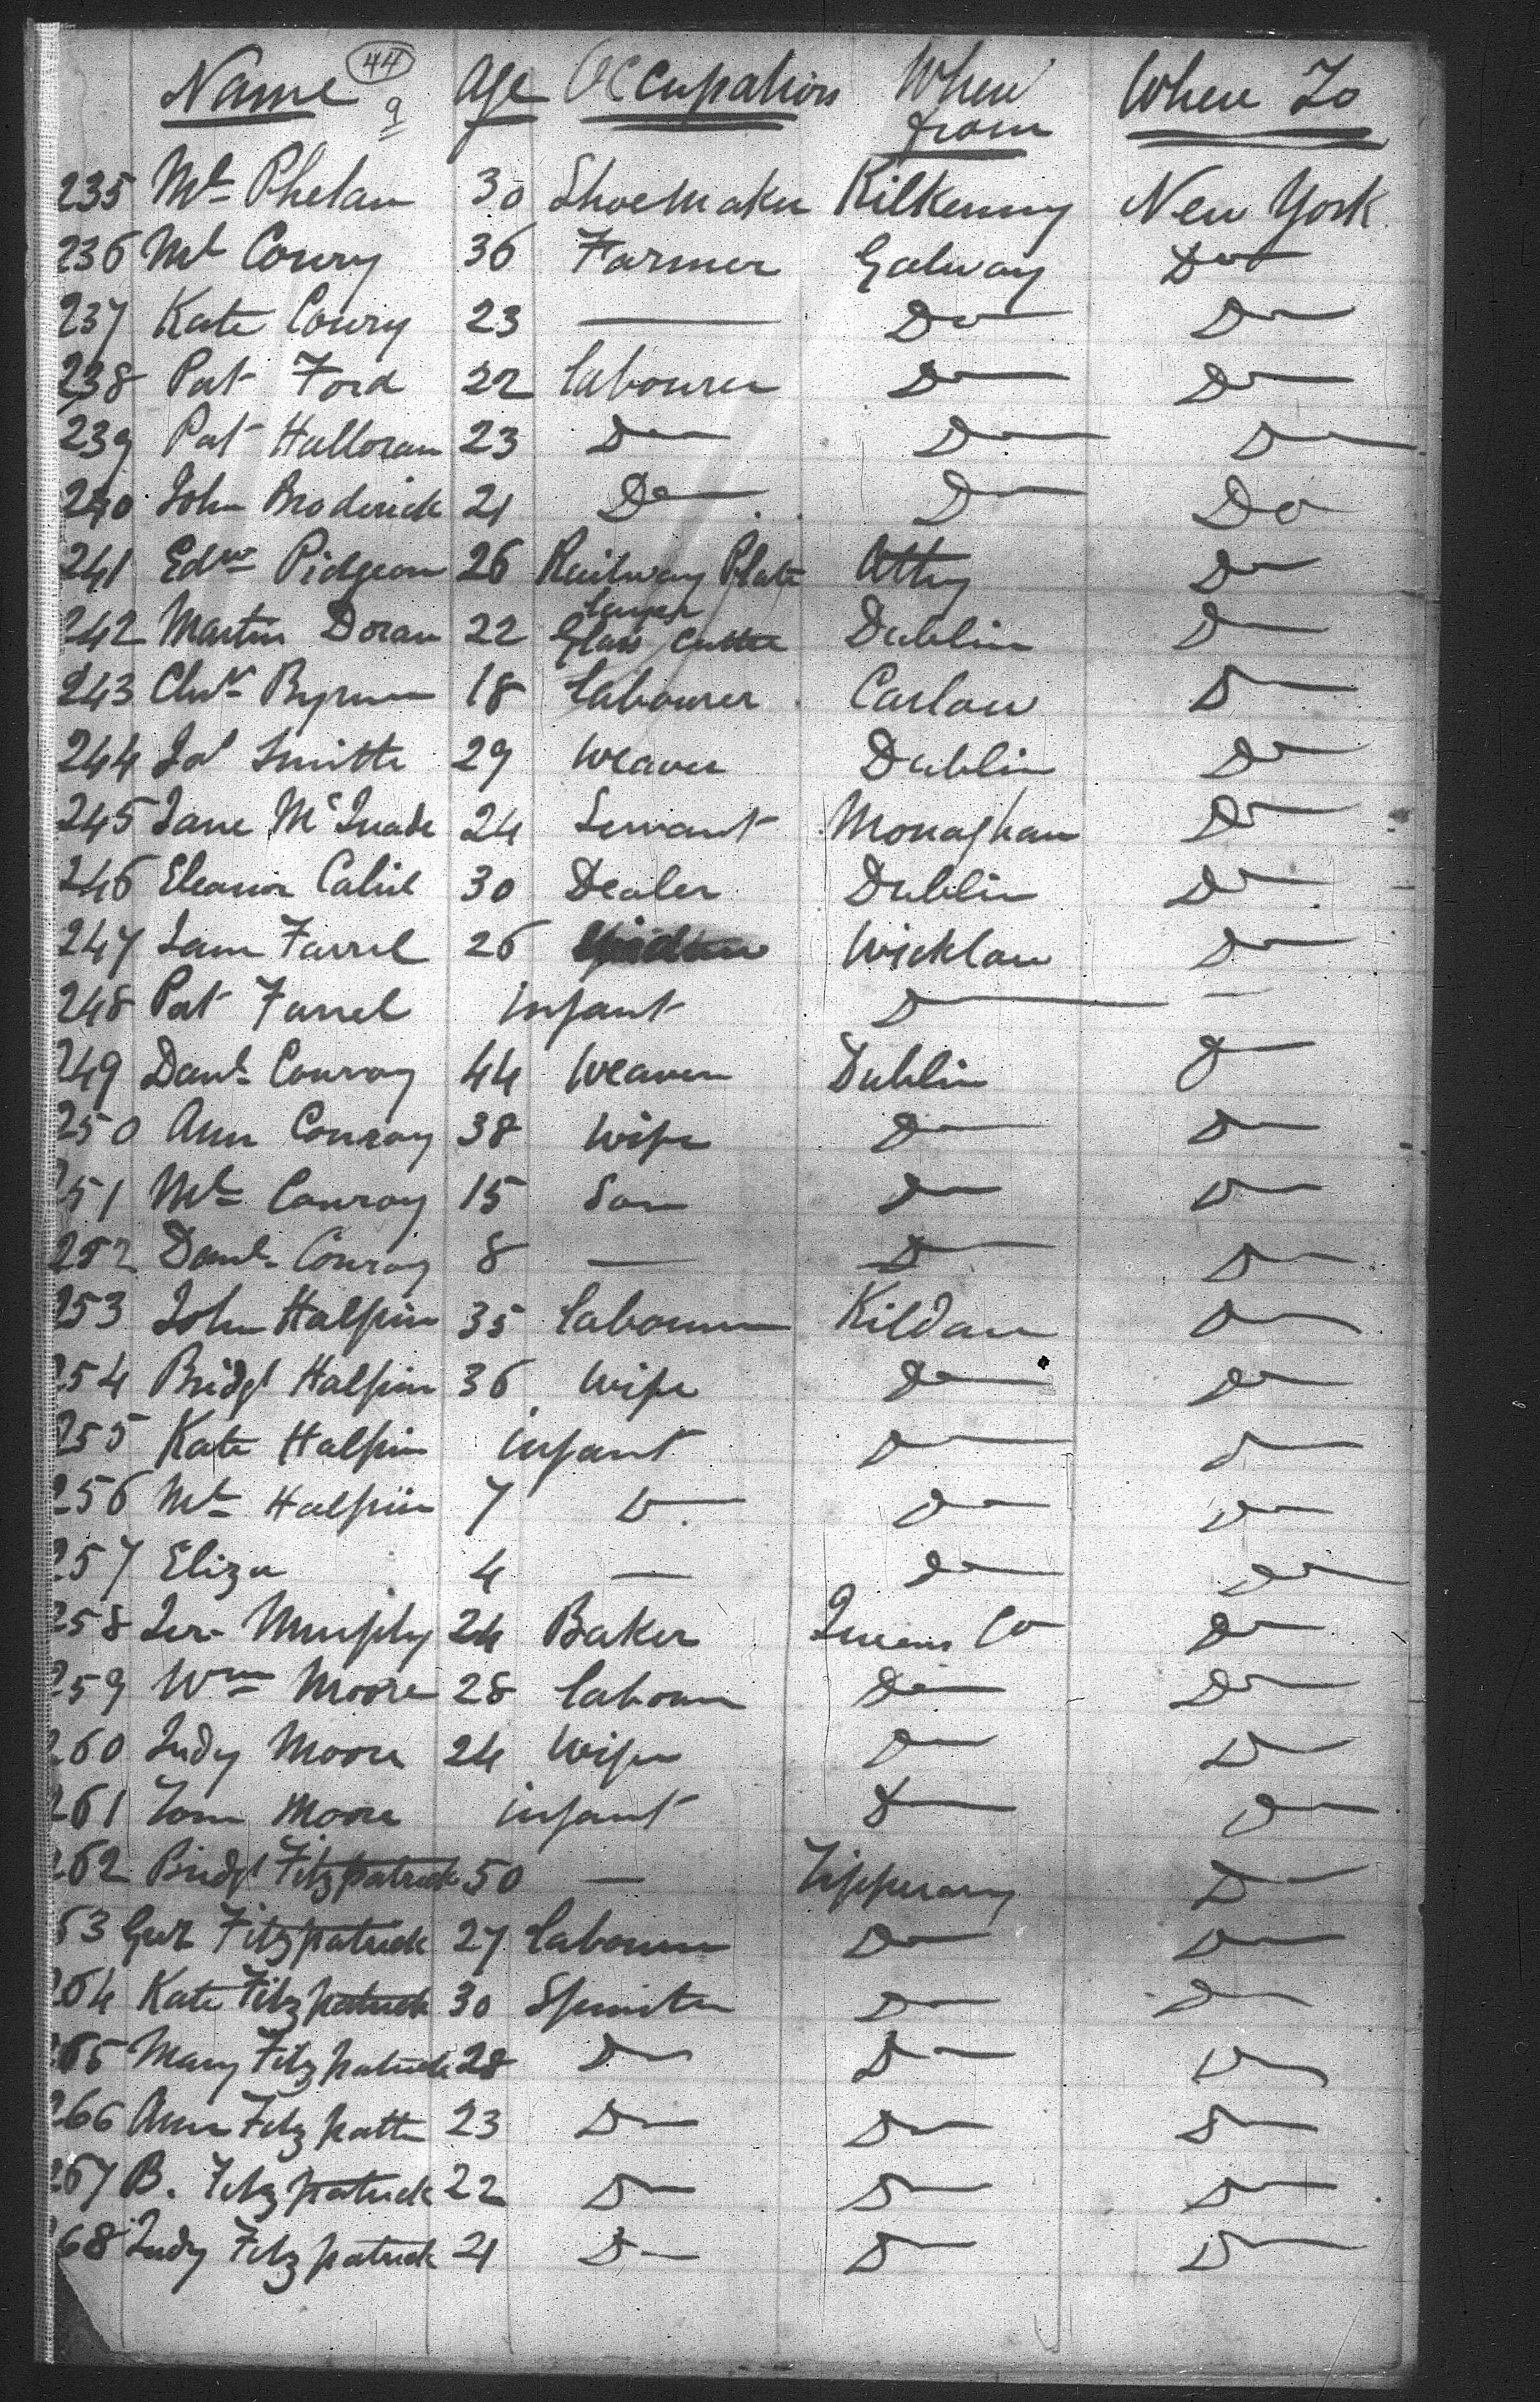 44
9
Name Age Occupation Where from Where To
235 Ml Phelan 30 Shoemaker Kilkenny New York
236 Ml Coury 36 Farmer Galway Do
237 Kate Coury 23 — Do Do
238 Pat Ford 22 labourer Do Do
239 Pat Halloran 23 Do Do Do
240 John Broderick 21 Do Do Do
241 Edwd Pidgeon 26 Railway Plate layer Athy Do
242 Martin Doran 22 Glass Cutter Dublin Do
243 Chrs Byrne 18 labourer Carlow Do
244 Js Smith 29 Weaver Dublin Do
245 Jane McQuade 24 Servant Monaghan Do
246 Eleanor Cahil 30 Dealer Dublin Do
247 Farrel 26 Wicklow Do
248 Pat Farrel infant Do —
249 Danl Conroy 44 Weaver Dublin Do
250 Ann Conroy 38 Wife Do Do
251 Ml Conroy 15 Son Do Do
252 Danl Conroy 8 — Do Do
253 John Halpin 35 labourer Kildare Do
254 Bridgt Halpin 36 Wife Do Do
255 Kate Halpin infant Do Do
256 Ml Halpin 7 D Do Do
257 Eliza 4 — Do Do
258 Jer Murphy 24 Baker Queens Co Do
259 Wm Moore 28 labourer Do Do
260 Judy Moore 24 Wife Do Do
261 Tom Moore infant Do Do
262 Bridgt Fitzpatrick 50 — Tipperary Do
63 Fitzpatrick 27 labourer Do Do
264 Kate Fitzpatrick 30 Spinster Do Do
265 Mary Fitzpatrick 28 Do Do Do
266 Ann Fitzpatk 23 Do Do Do
267 B. Fitzpatrick 22 Do Do Do
268 Judy Fitzpatrick 21 Do Do Do